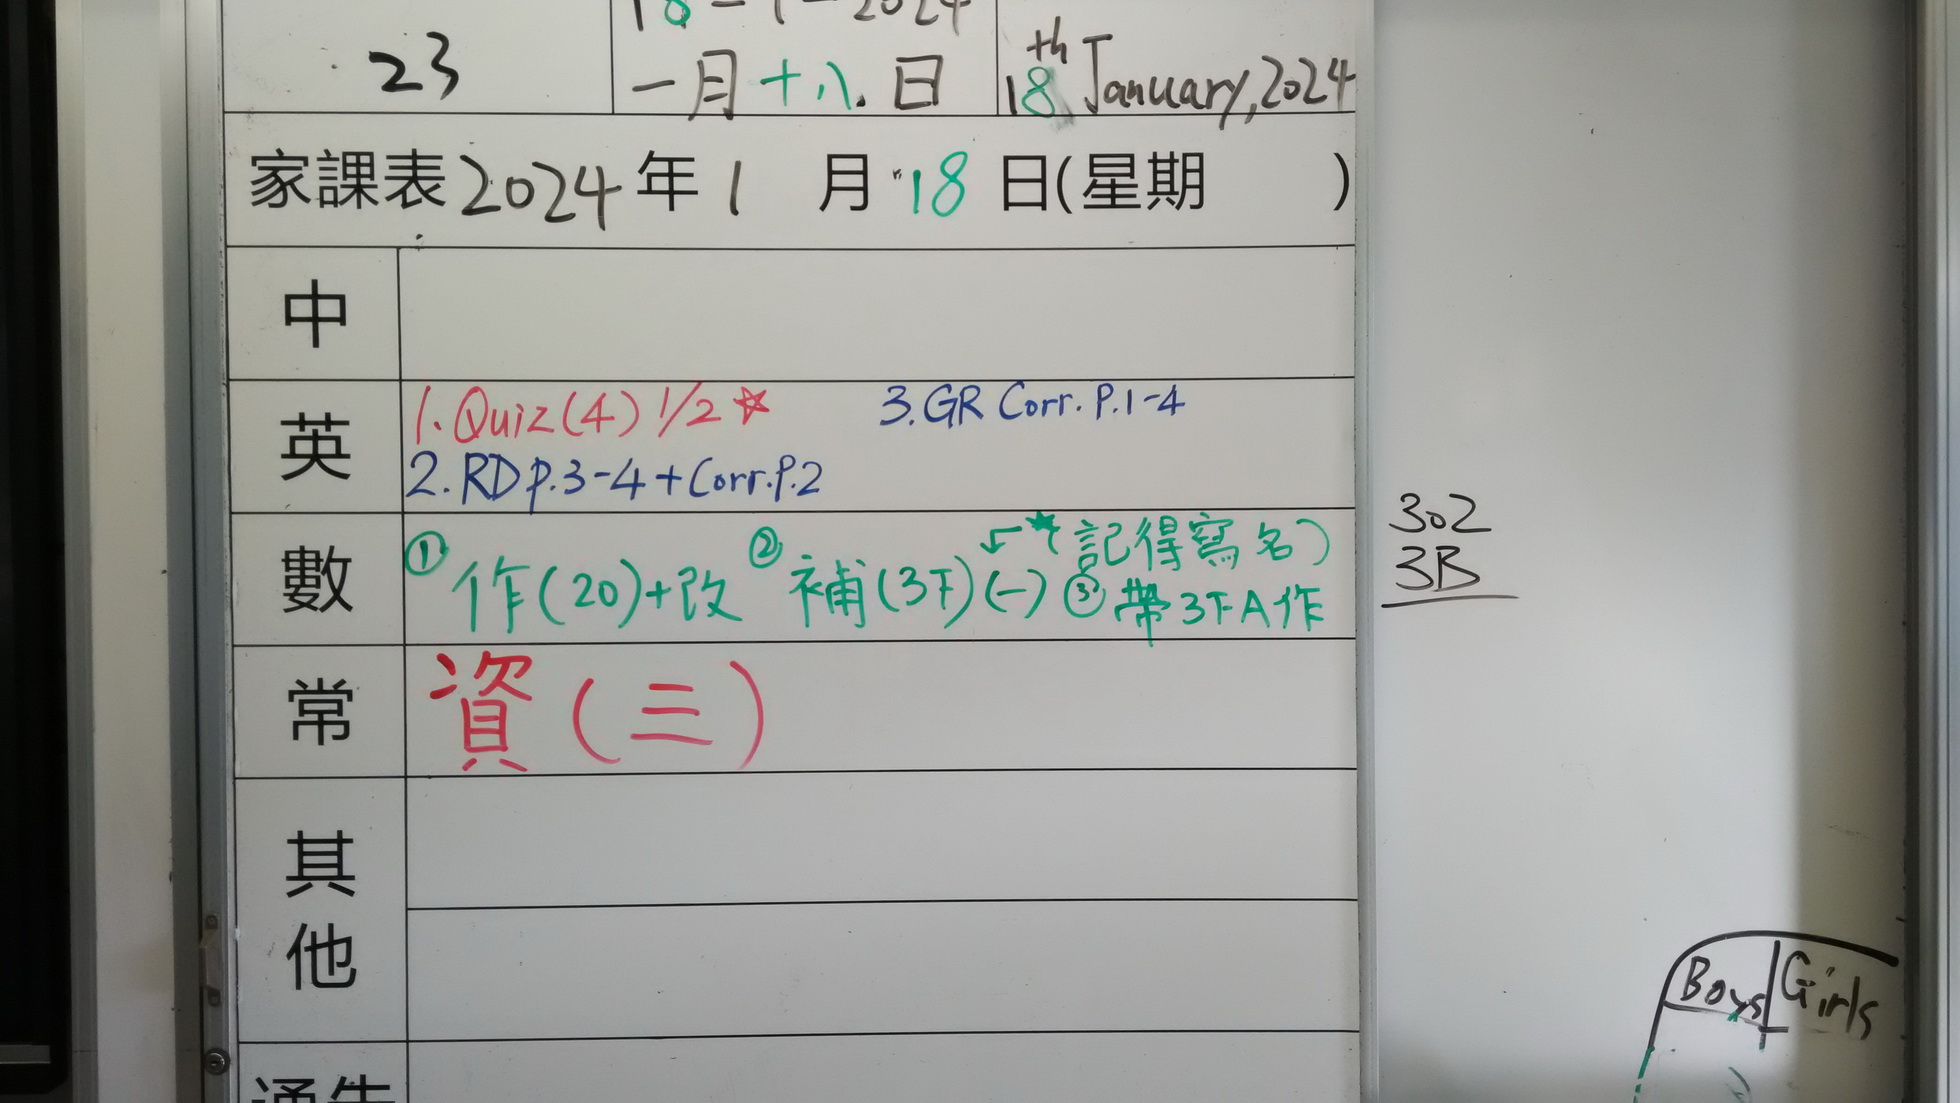 18-1-2024
23
一月十八日
18th January, 2024
家課表2024年1月18日(星期 )
中
英
1.Quiz(4) 1/2☆
3.GR Corr. P.1-4
2.RD P.3-4+Corr.P.2
數
①作(20)+改 ②補(3下)(一) ←★(記得寫名)
③帶3下A作
常
資(三)
其他
通告
302
3B
Boys
Girls